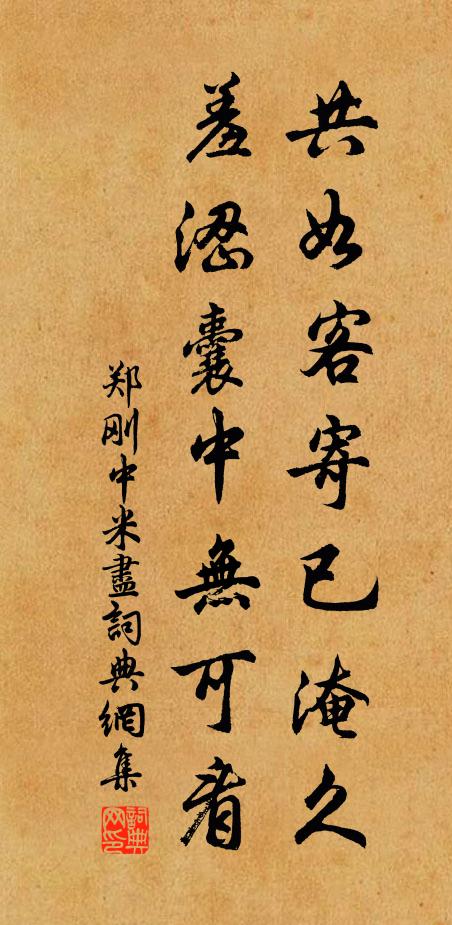 共如客寄已淹久
羞涩囊中無可看
郑刚中米盡詞典網集
詞典网印